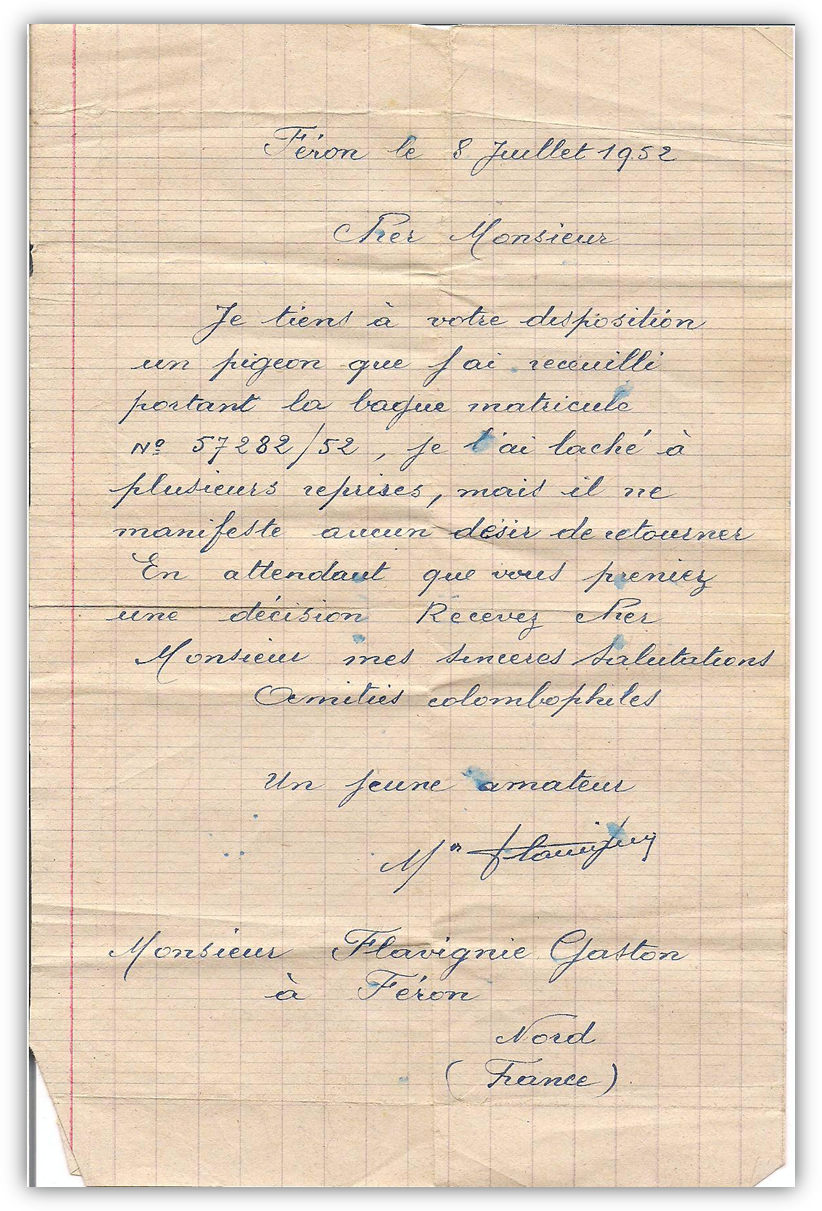 Féron le 8 Juillet 1952
Cher Monsieur
Je tiens à votre disposition
un pigeon que j'ai receuilli
portant la bague matricule
Nº 57282/52, je l'ai laché à
plusieurs reprises, mais il ne
manifeste aucun désir de retourner
En attendant que vous preniez
une décision Recevez cher
Monsieur mes sinceres salutations
Amitiés colombophiles
Un jeune amateur
Mr Flavigny
Monsieur Flavignie Gaston
à Féron
Nord
(France)